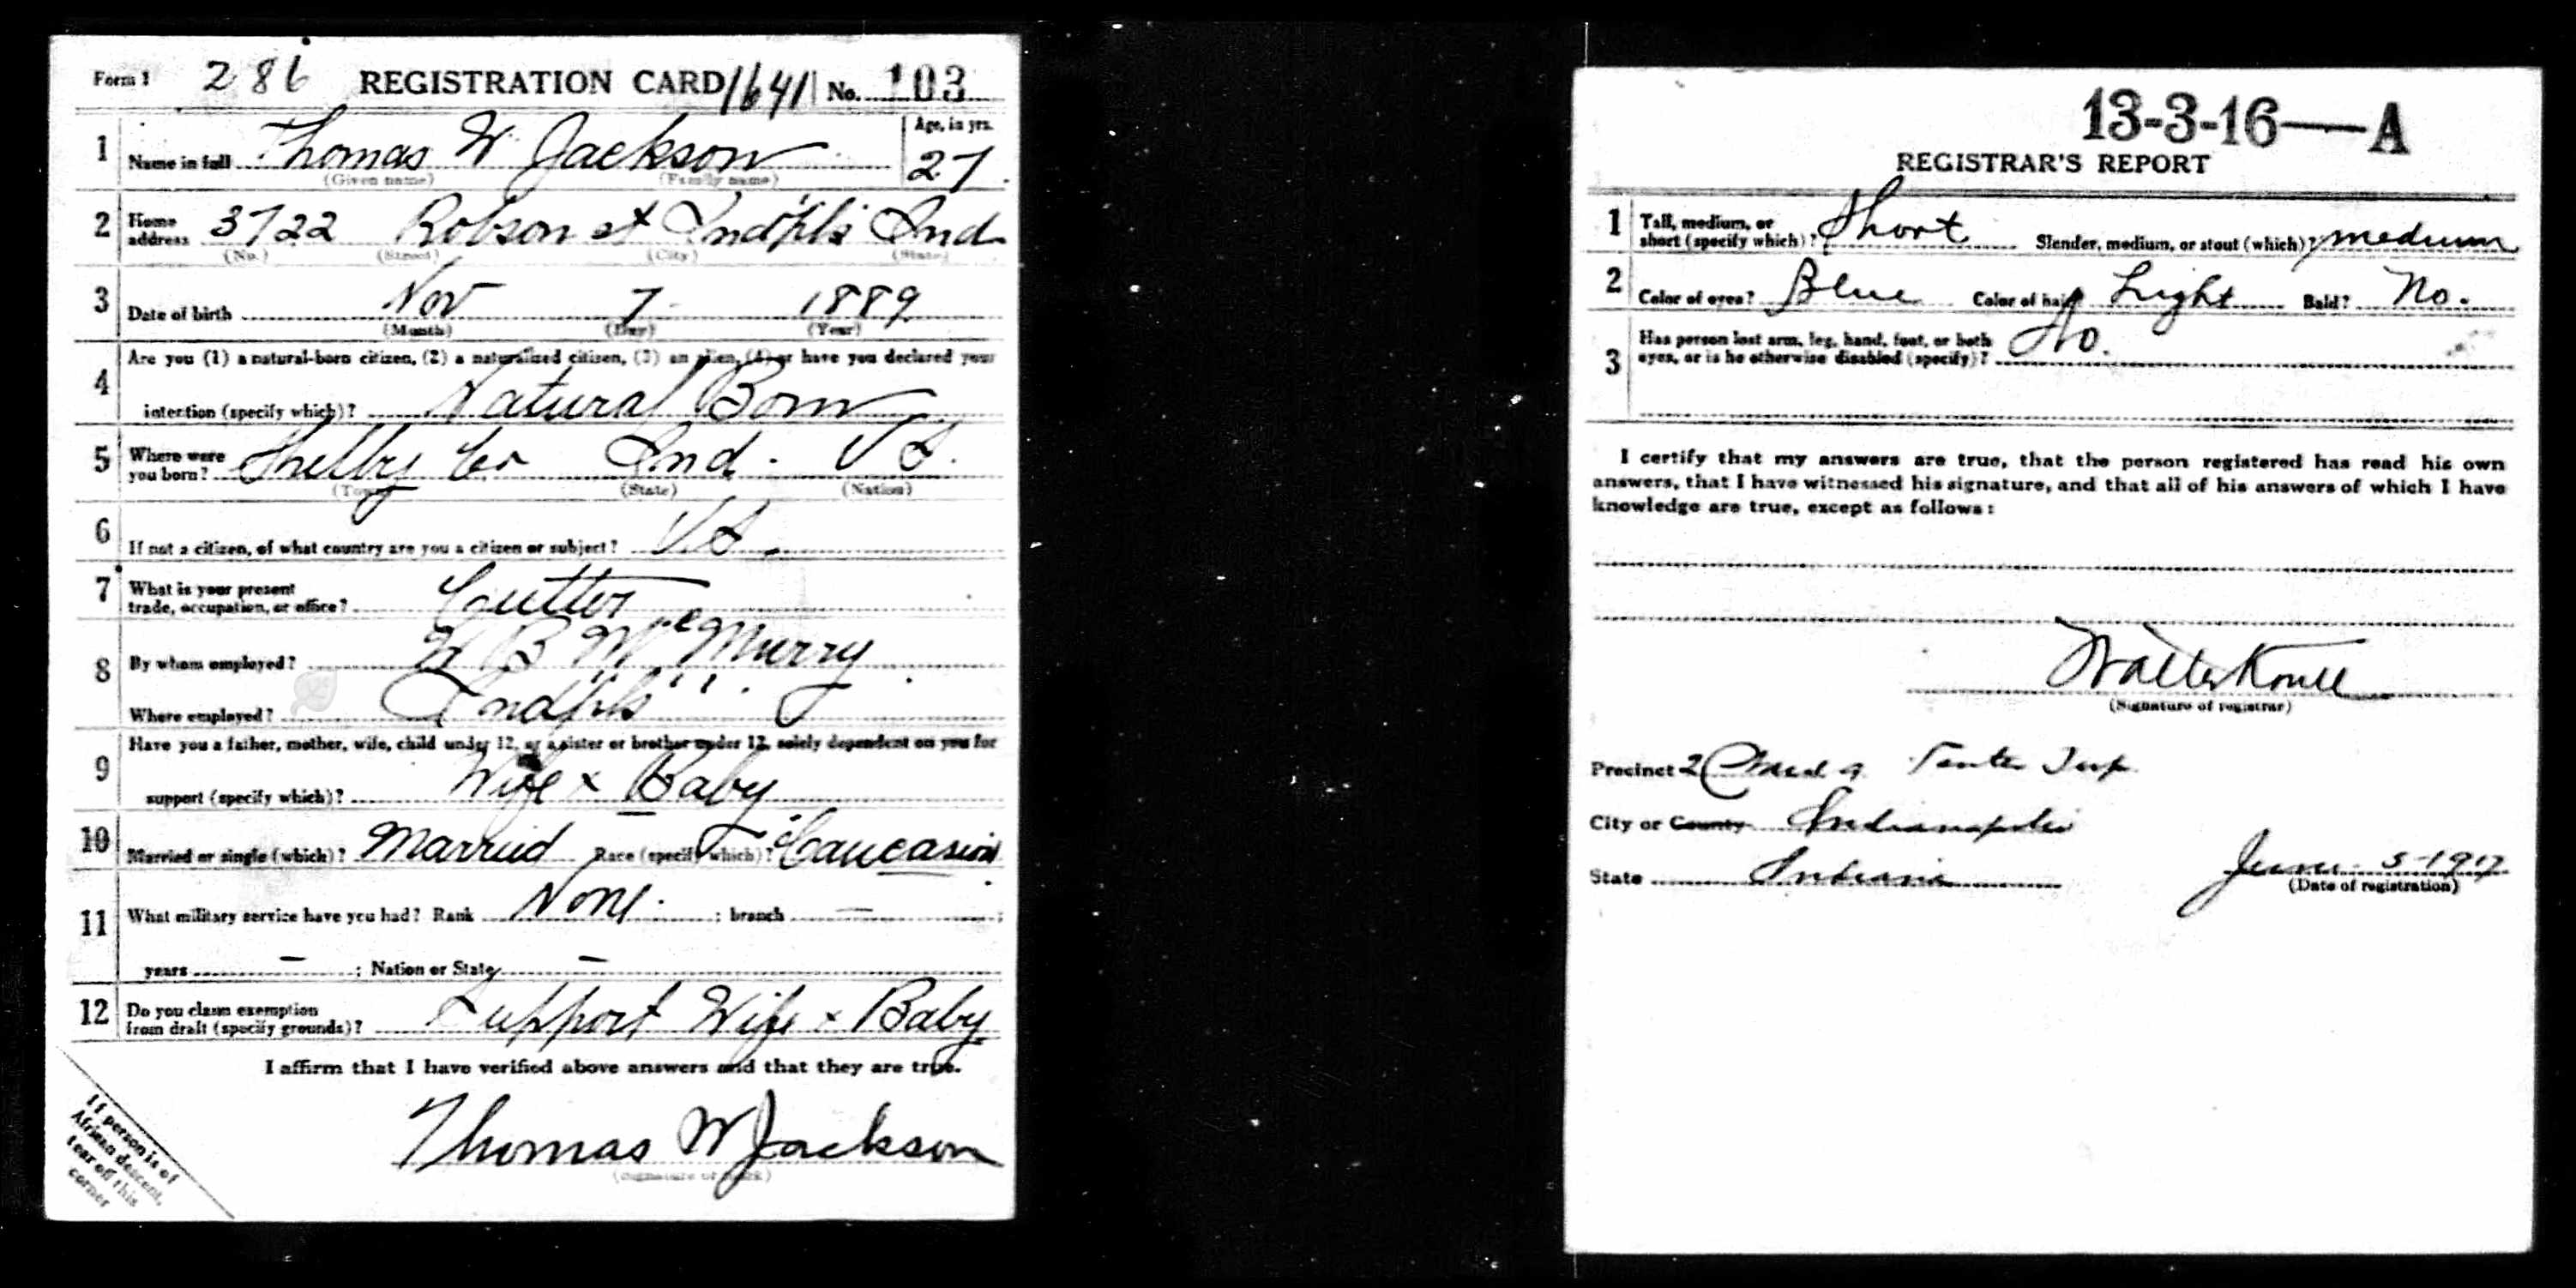 Form 1 286 REGISTRATION CARD 1641 No. 103
1 Name in full Thomas W Jackson Age, in yrs. 27
(Given name) (Family name)
2 Home address 3722 Robson st Ind'pls Ind
(No.) (Street) (City) (State)
3 Date of birth Nov 7 1889
(Month) (Day) (Year)
4 Are you (1) a natural-born citizen, (2) a naturalized citizen, (3) an alien, (4) or have you declared your
intention (specify which)? Natural Born
5 Where were you born? Shelby Co Ind. US.
(Town) (State) (Nation)
6 If not a citizen, of what country are you a citizen or subject? U.S.
7 What is your present trade, occupation, or office? Cutter
8 By whom employed? McMurry
Where employed? Ind'pls
9 Have you a father, mother, wife, child under 12, or a sister or brother under 12, solely dependent on you for
support (specify which)? Wife x Baby
10 Married or single (which)? Married Race (specify which)? Caucasion
11 What military service have you had? Rank None. ; branch — ;
years — ; Nation or State —
12 Do you claim exemption from draft (specify grounds)? Support Wife x Baby
I affirm that I have verified above answers and that they are true.
Thomas W Jackson
(Signature or mark)
If person is of
African descent,
tear off this
corner
13-3-16—A
REGISTRAR'S REPORT
1 Tall, medium, or short (specify which)? Short Slender, medium, or stout (which)? medium
2 Color of eyes? Blue Color of hair? Light Bald? No.
3 Has person lost arm, leg, hand, foot, or both
eyes, or is he otherwise disabled (specify)? No.
I certify that my answers are true, that the person registered has read his own
answers, that I have witnessed his signature, and that all of his answers of which I have
knowledge are true, except as follows:
Walter
(Signature of registrar)
Precinct 2 Ward 9 Twp.
City or County Indianapolis
State Indiana June 5-1917
(Date of registration)